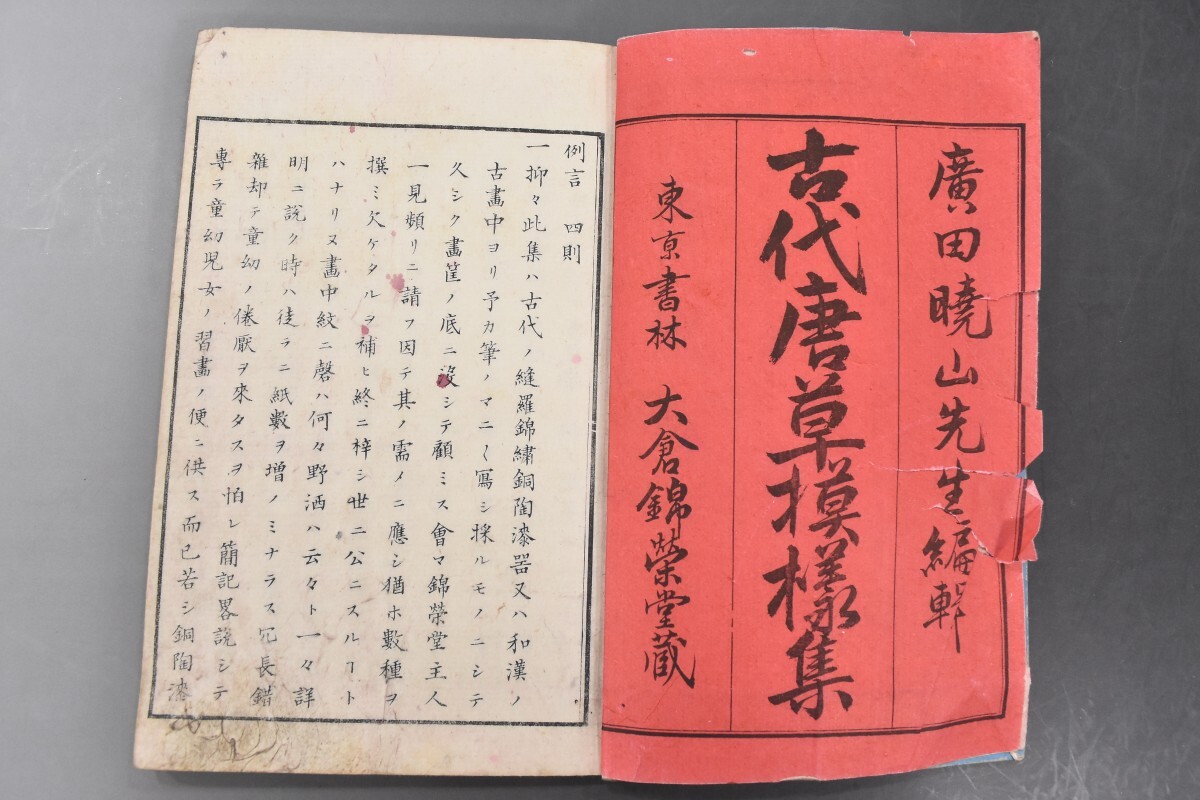 廣田曉山先生編輯
古代唐草模様集
東京書林 大倉錦榮堂蔵
例言 四則
一抑々此集ハ古代ノ縫羅錦繡銅陶漆器又ハ和漢ノ
古畫中ヨリ予カ筆ノマニ〱冩シ採ルモノニシテ
久シク畫筐ノ底ニ没シテ顧ミス會マ錦榮堂主人
一見頻リニ請フ因テ其ノ需メニ應シ猶ホ數種ヲ
撰ミ欠ケタルヲ補ヒ終ニ梓シ世ニ公ニスルヿト
ハナリヌ畫中紋ニ磬ハ何々野洒ハ云々ト一々詳
明ニ説ク時ハ徒ラニ紙數ヲ增ノミナラス冗長錯
雜却テ童幼ノ倦厭ヲ來タスヲ怕レ簡記畧説シテ
專ラ童幼児女ノ習畫ノ便ニ供ス而已若シ銅陶漆